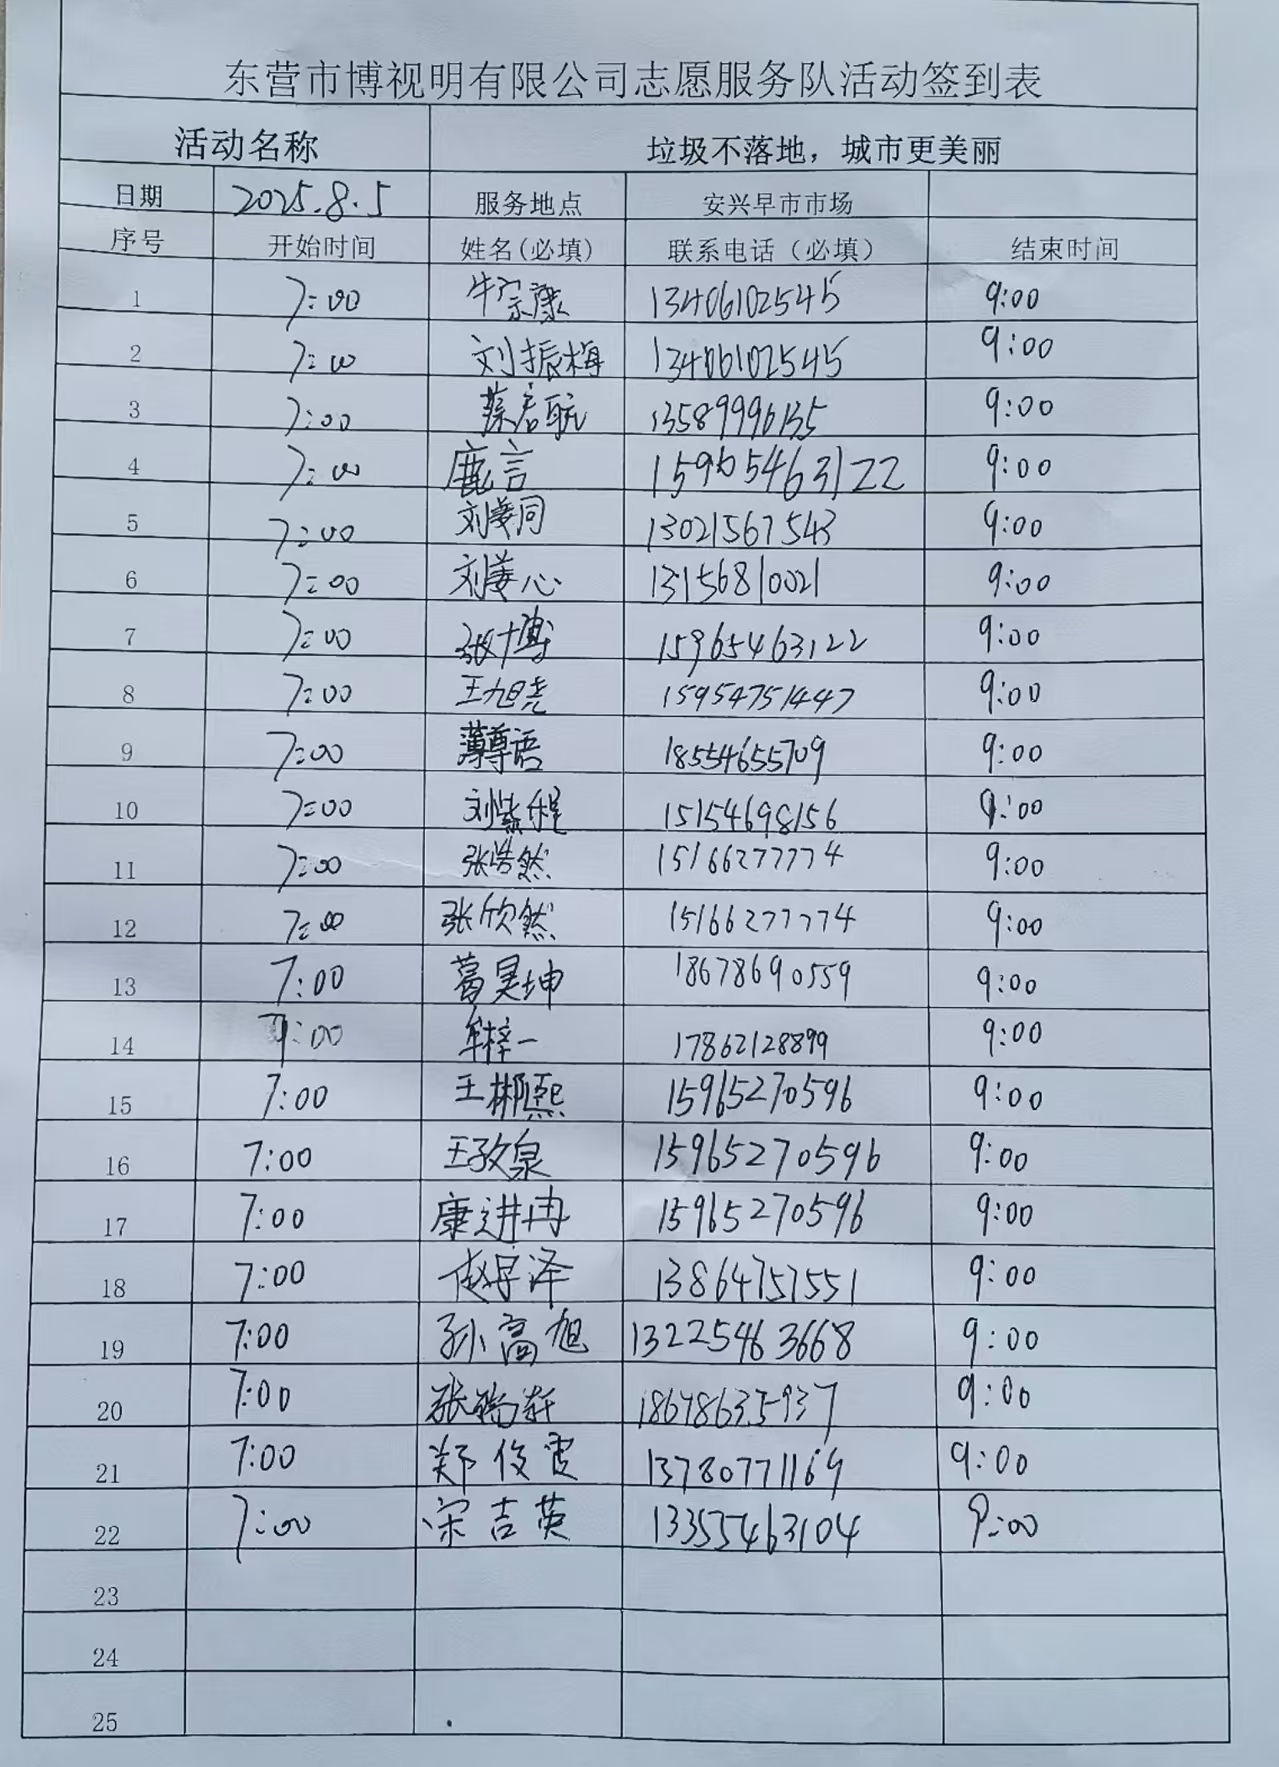 东营市博视明有限公司志愿服务队活动签到表
活动名称 垃圾不落地，城市更美丽
日期 2025.8.5 服务地点 安兴早市市场
序号 开始时间 姓名(必填) 联系电话（必填） 结束时间
1 7:00 牛宗康 13406102545 9:00
2 7:00 刘振梅 13406102545 9:00
3 7:00 蔡君航 13589996135 9:00
4 7:00 鹿言 15965463122 9:00
5 7:00 刘姜同 13021567543 9:00
6 7:00 刘姜心 13156810021 9:00
7 7:00 张博 15965463122 9:00
8 7:00 王旭尧 15954751447 9:00
9 7:00 薄尊语 18554655709 9:00
10 7:00 刘紫程 15154698156 9:00
11 7:00 张浩然 15166277774 9:00
12 7:00 张欣然 15166277774 9:00
13 7:00 葛昊坤 18678690559 9:00
14 7:00 牟梓一 17862128899 9:00
15 7:00 王郴熙 15965270596 9:00
16 7:00 王孜泉 15965270596 9:00
17 7:00 康进冉 15965270596 9:00
18 7:00 赵宇泽 13864757551 9:00
19 7:00 孙富旭 13225463668 9:00
20 7:00 张瀚轩 18678635937 9:00
21 7:00 郑俊霞 13780771169 9:00
22 7:00 宋吉英 13355463104 9:00
23
24
25